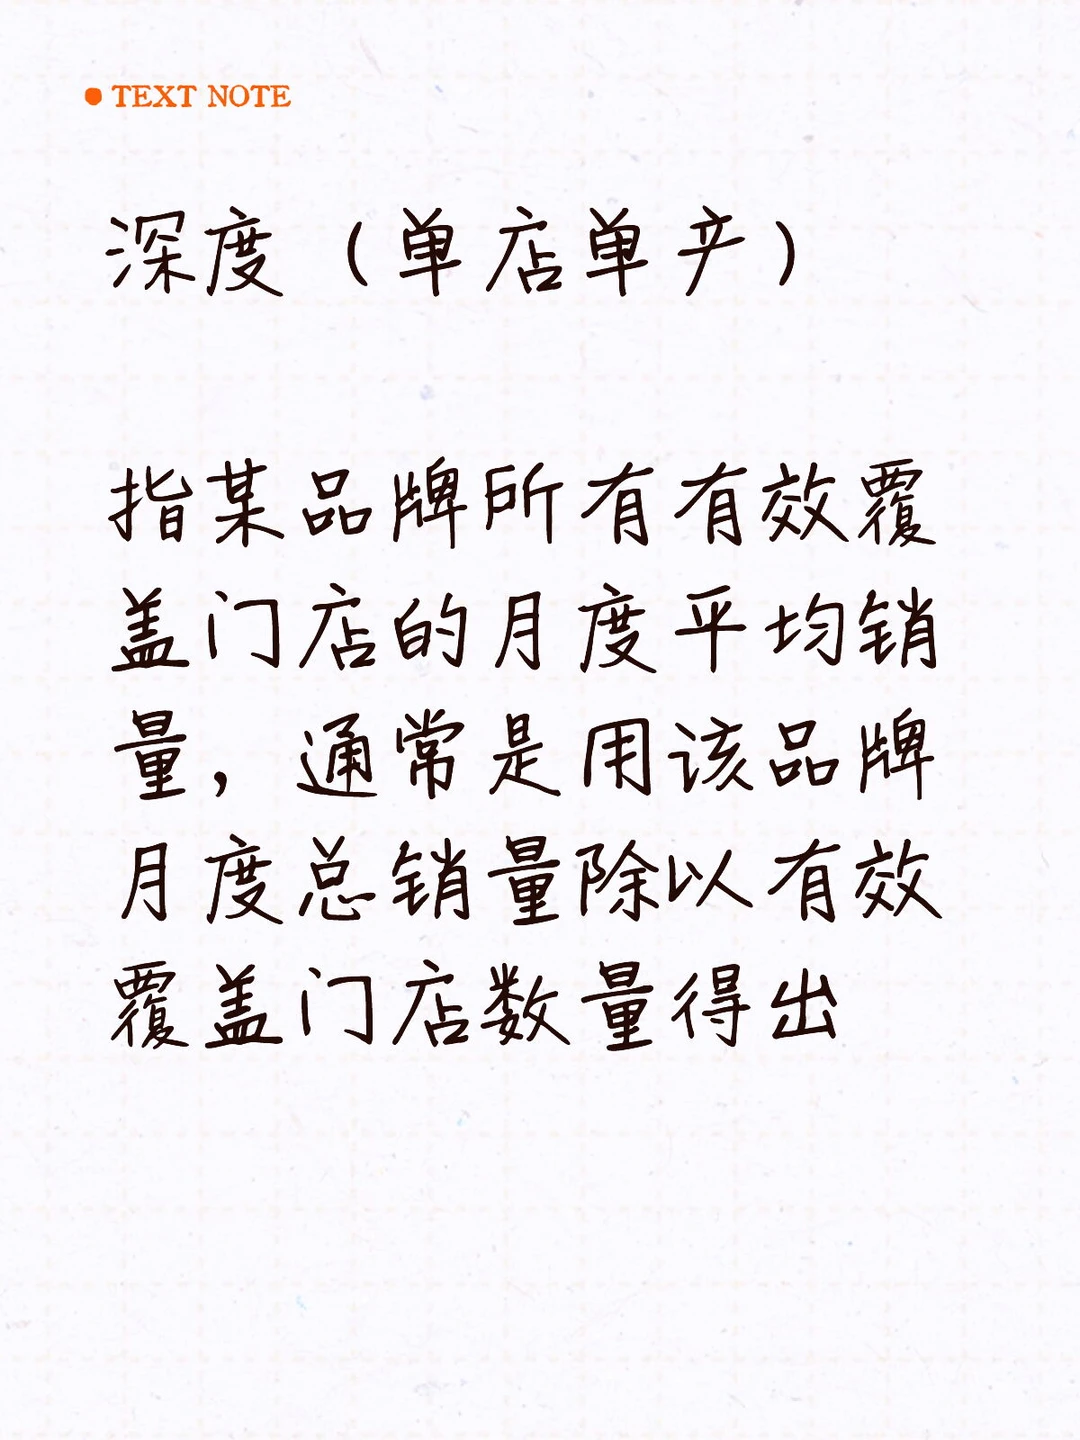 TEXT NOTE
深度（单店单产）
指某品牌所有有效覆
盖门店的月度平均销
量，通常是用该品牌
月度总销量除以有效
覆盖门店数量得出